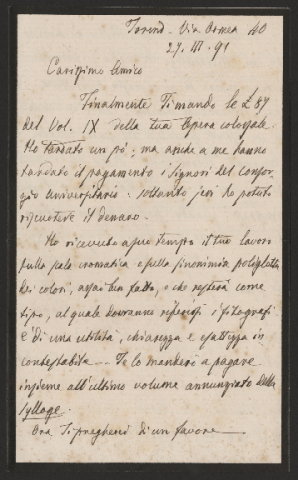 Torino - Via Ormea 40
27. III. 91
Carissimo Amico
Finalmente Ti mando le £ 87
del Vol. IX della tua Opera colossale.
Ho tardato un po'; ma anche a me hanno
tardato il pagamento i Signori del Consor-
zio universitario: soltanto jeri ho potuto
riscuotere il denaro.
Ho ricevuto a suo tempo il tuo lavoro
sulla scala cromatica e sulla sinonimia poliglotta
dei colori, assai ben fatto, e che resterà come
tipo, al quale dovranno riferirsi i fitografi
È di una utilità, chiarezza e esattezza in-
contestabile — Te lo manderò a pagare
insieme all'ultimo volume annunziato della
Sylloge.
Ora Ti pregherei di un favore —